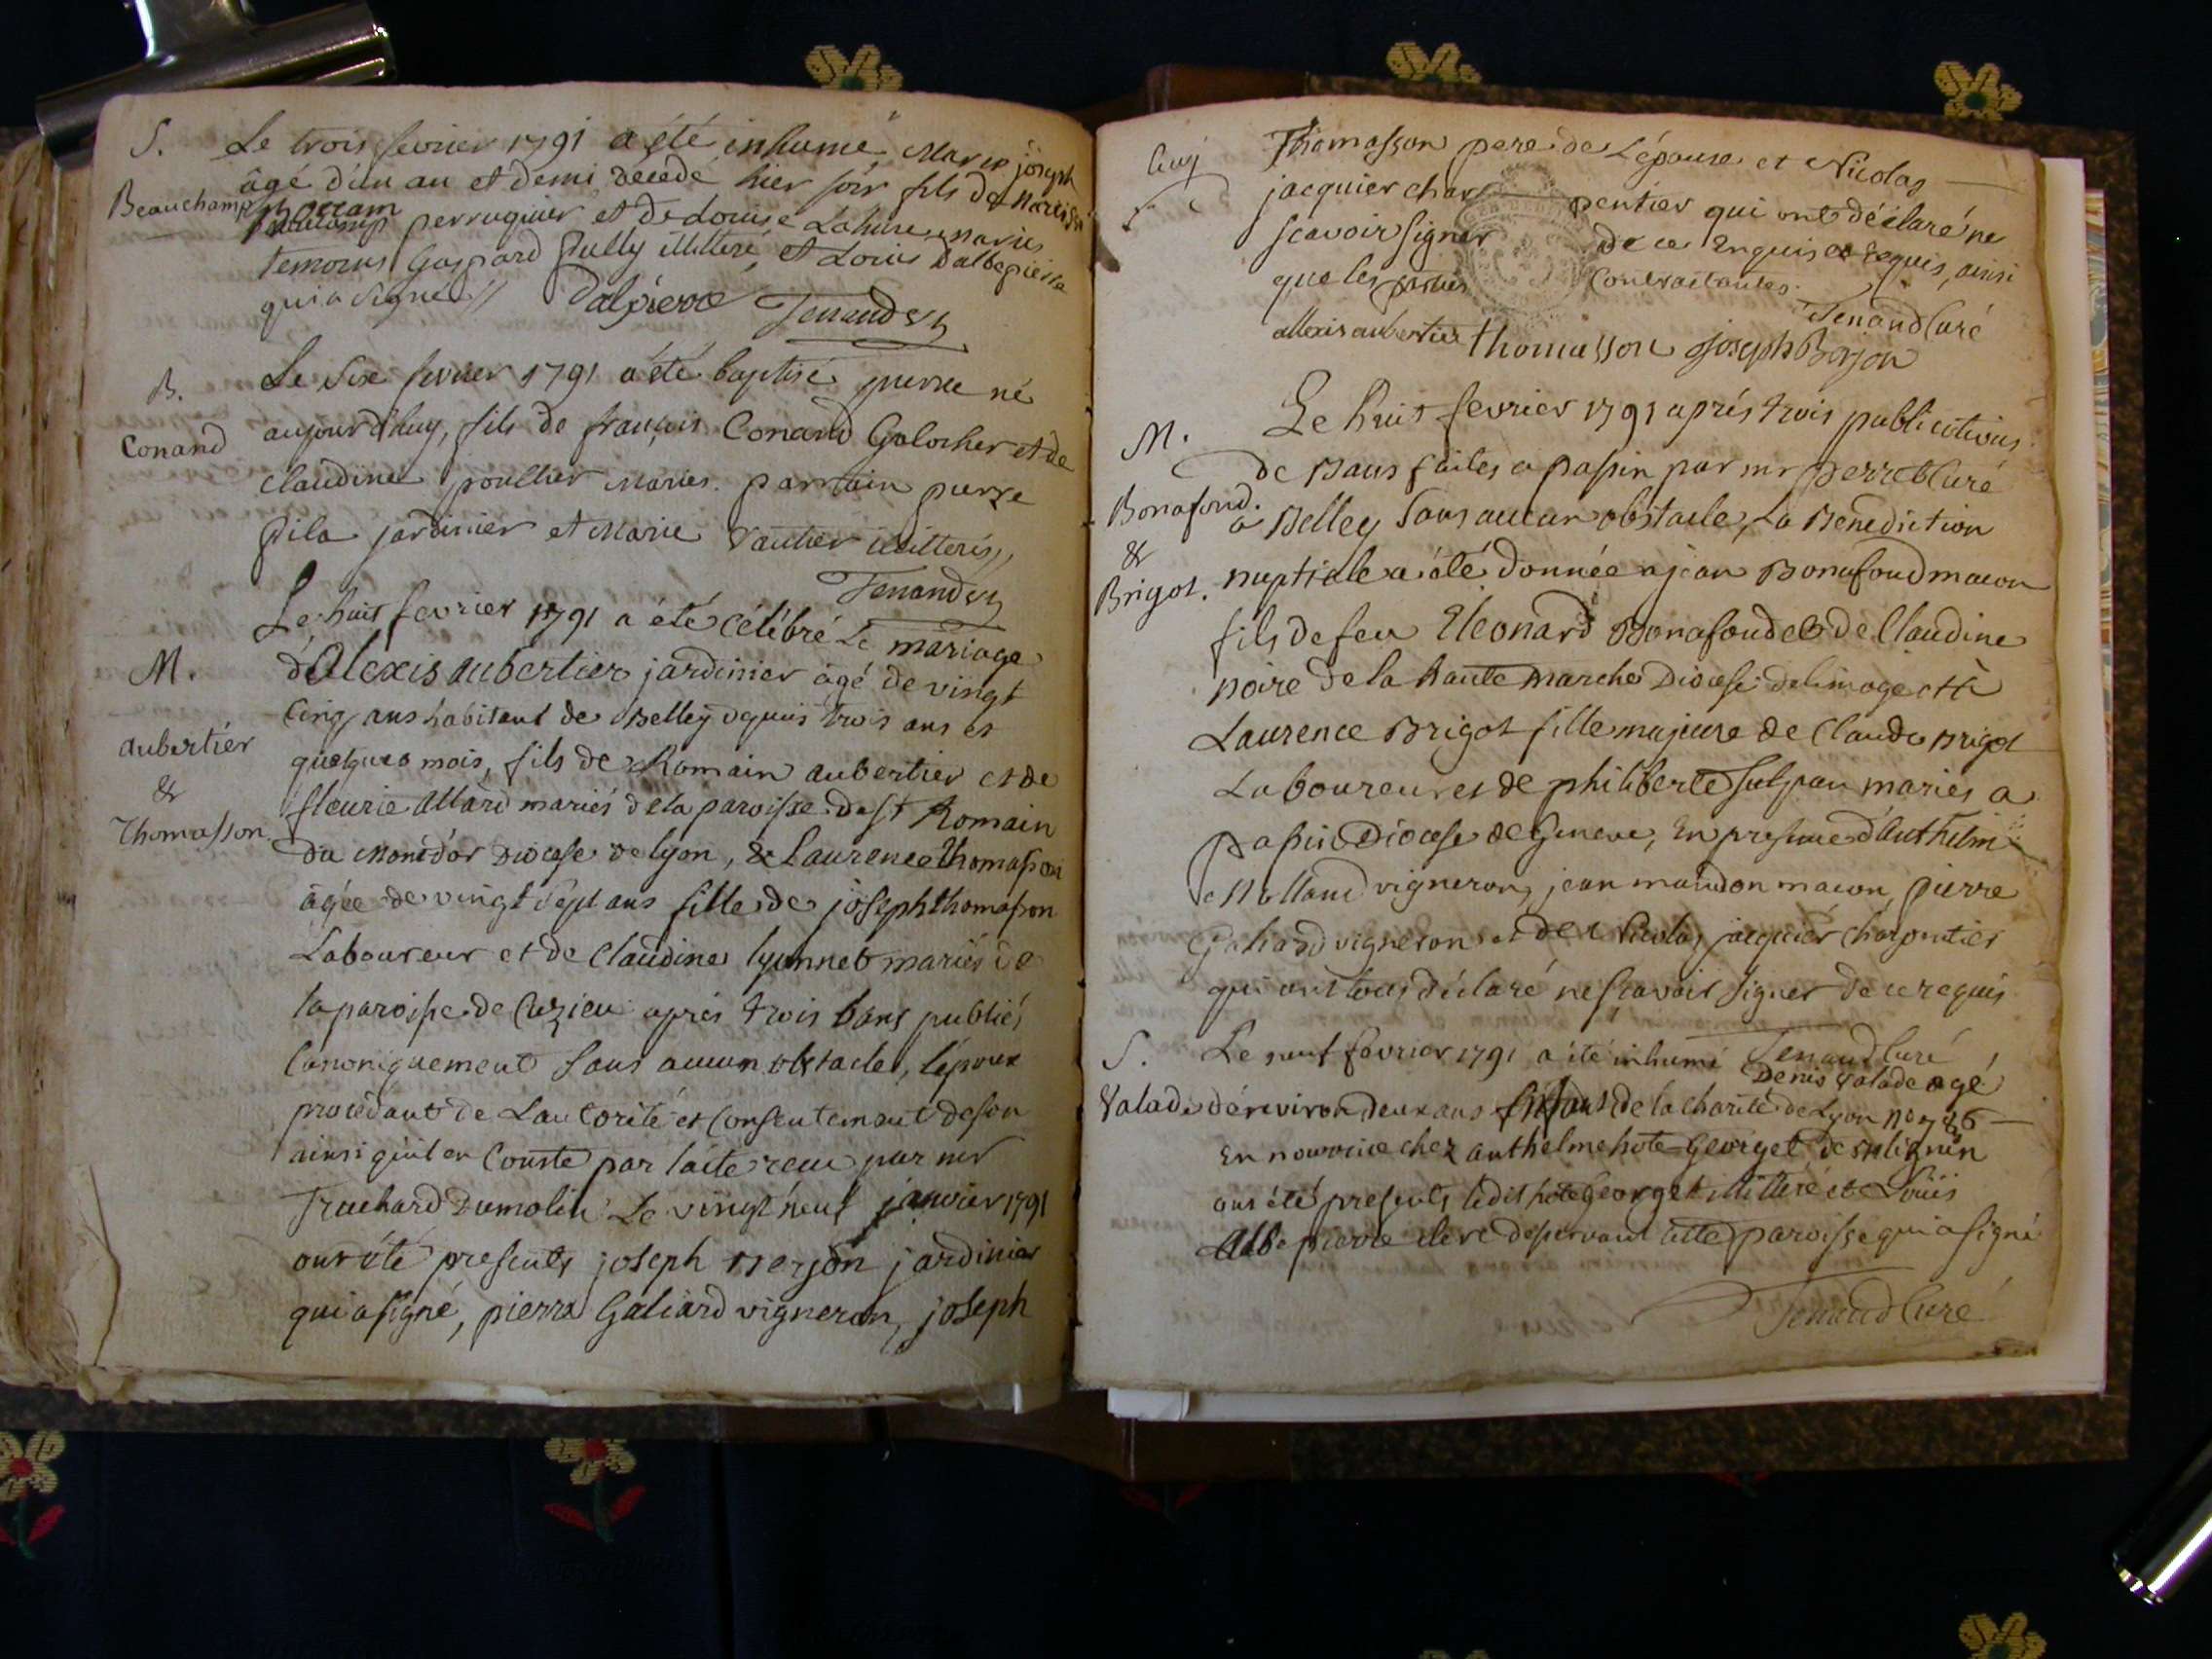 S. Le trois fevrier 1791 a été inhumé Marie joseph
âgé d'un an et demi décédé hier soir fils de Narcisse
Beauchamp perruquier et de Louise Lahure mariés
temoins Gaspard Pully illiteré, et Louis Dalbepierre
qui a signé // Dalpierre Tenand
B. Le Six fevrier 1791 a été baptisé pierre né
Conand aujourd'huy, fils de françois Conand Galocher et de
Claudine poullier Mariés. parrain pierre
Pila jardinier et Marie Vautier illiterés //
Tenand
Le huit fevrier 1791 a été Célébré Le mariage
M. d'Alexis aubertier jardinier âgé de vingt
Cinq ans habitant de Belley depuis trois ans et
aubertier quelques mois, fils de Romain aubertier et de
& fleurie Allard mariés de la paroisse de St Romain
Thomasson. du Montd'or Diocese de lyon, & Laurence thomasson
âgée de vingt sept ans fille de joseph thomasson
Laboureur et de Claudine lyonnet mariés de
la paroisse de Cuzieu après trois bans publiés
Canoniquement Sans aucun obstacle, l'époux
procédant de L'autorité et Consentement de son
ainsi qu'il en Conste par l'acte recu par mr
Truchard Dumolin Le vingt neuf janvier 1791
ont été presents joseph Berjon jardinier
qui a signé, pierre Galiard vigneron, joseph
Thomasson pere de L'épouse et Nicolas
jacquier char pentier qui ont déclaré ne
scavoir signer de ce Enquis et requis, ainsi
que les parties Contractantes.
Tenand Curé
allexis aubertier thomasson joseph Berjon
Le huit fevrier 1791 après trois publications
M. de Bans faites a passin par mr perret Curé
Bonafond. a Belley Sans aucun obstacle, La Benediction
& nuptiale a été donnée a jean Bonafoud macon
Brigot. fils de feu Eleonard Bonafoud et de Claudine
noire de la haute marche Diocese de limoge et à
Laurence Brigot fille majeure de Claude Brigot
Laboureur et de philiberte mariés a
Diocese de Geneve, En presence d'anthelme
vigneron, jean maudon macon, pierre
Galiard vigneron et de Nicolas jacquier charpentier
qui ont tous déclaré ne scavoir signer de ce requis
Tenand Curé
S. Le neuf fevrier 1791 a été inhumé Denis Valade agé
Valade d'environ deux ans Enfant de la charité de Lyon no 786
En nourrice chez anthelme hote-Georget de
ont été presents ledit hote Georget illiteré et Louis
Dalbepierre clerc deservant cette paroisse qui a signé
Tenand Curé